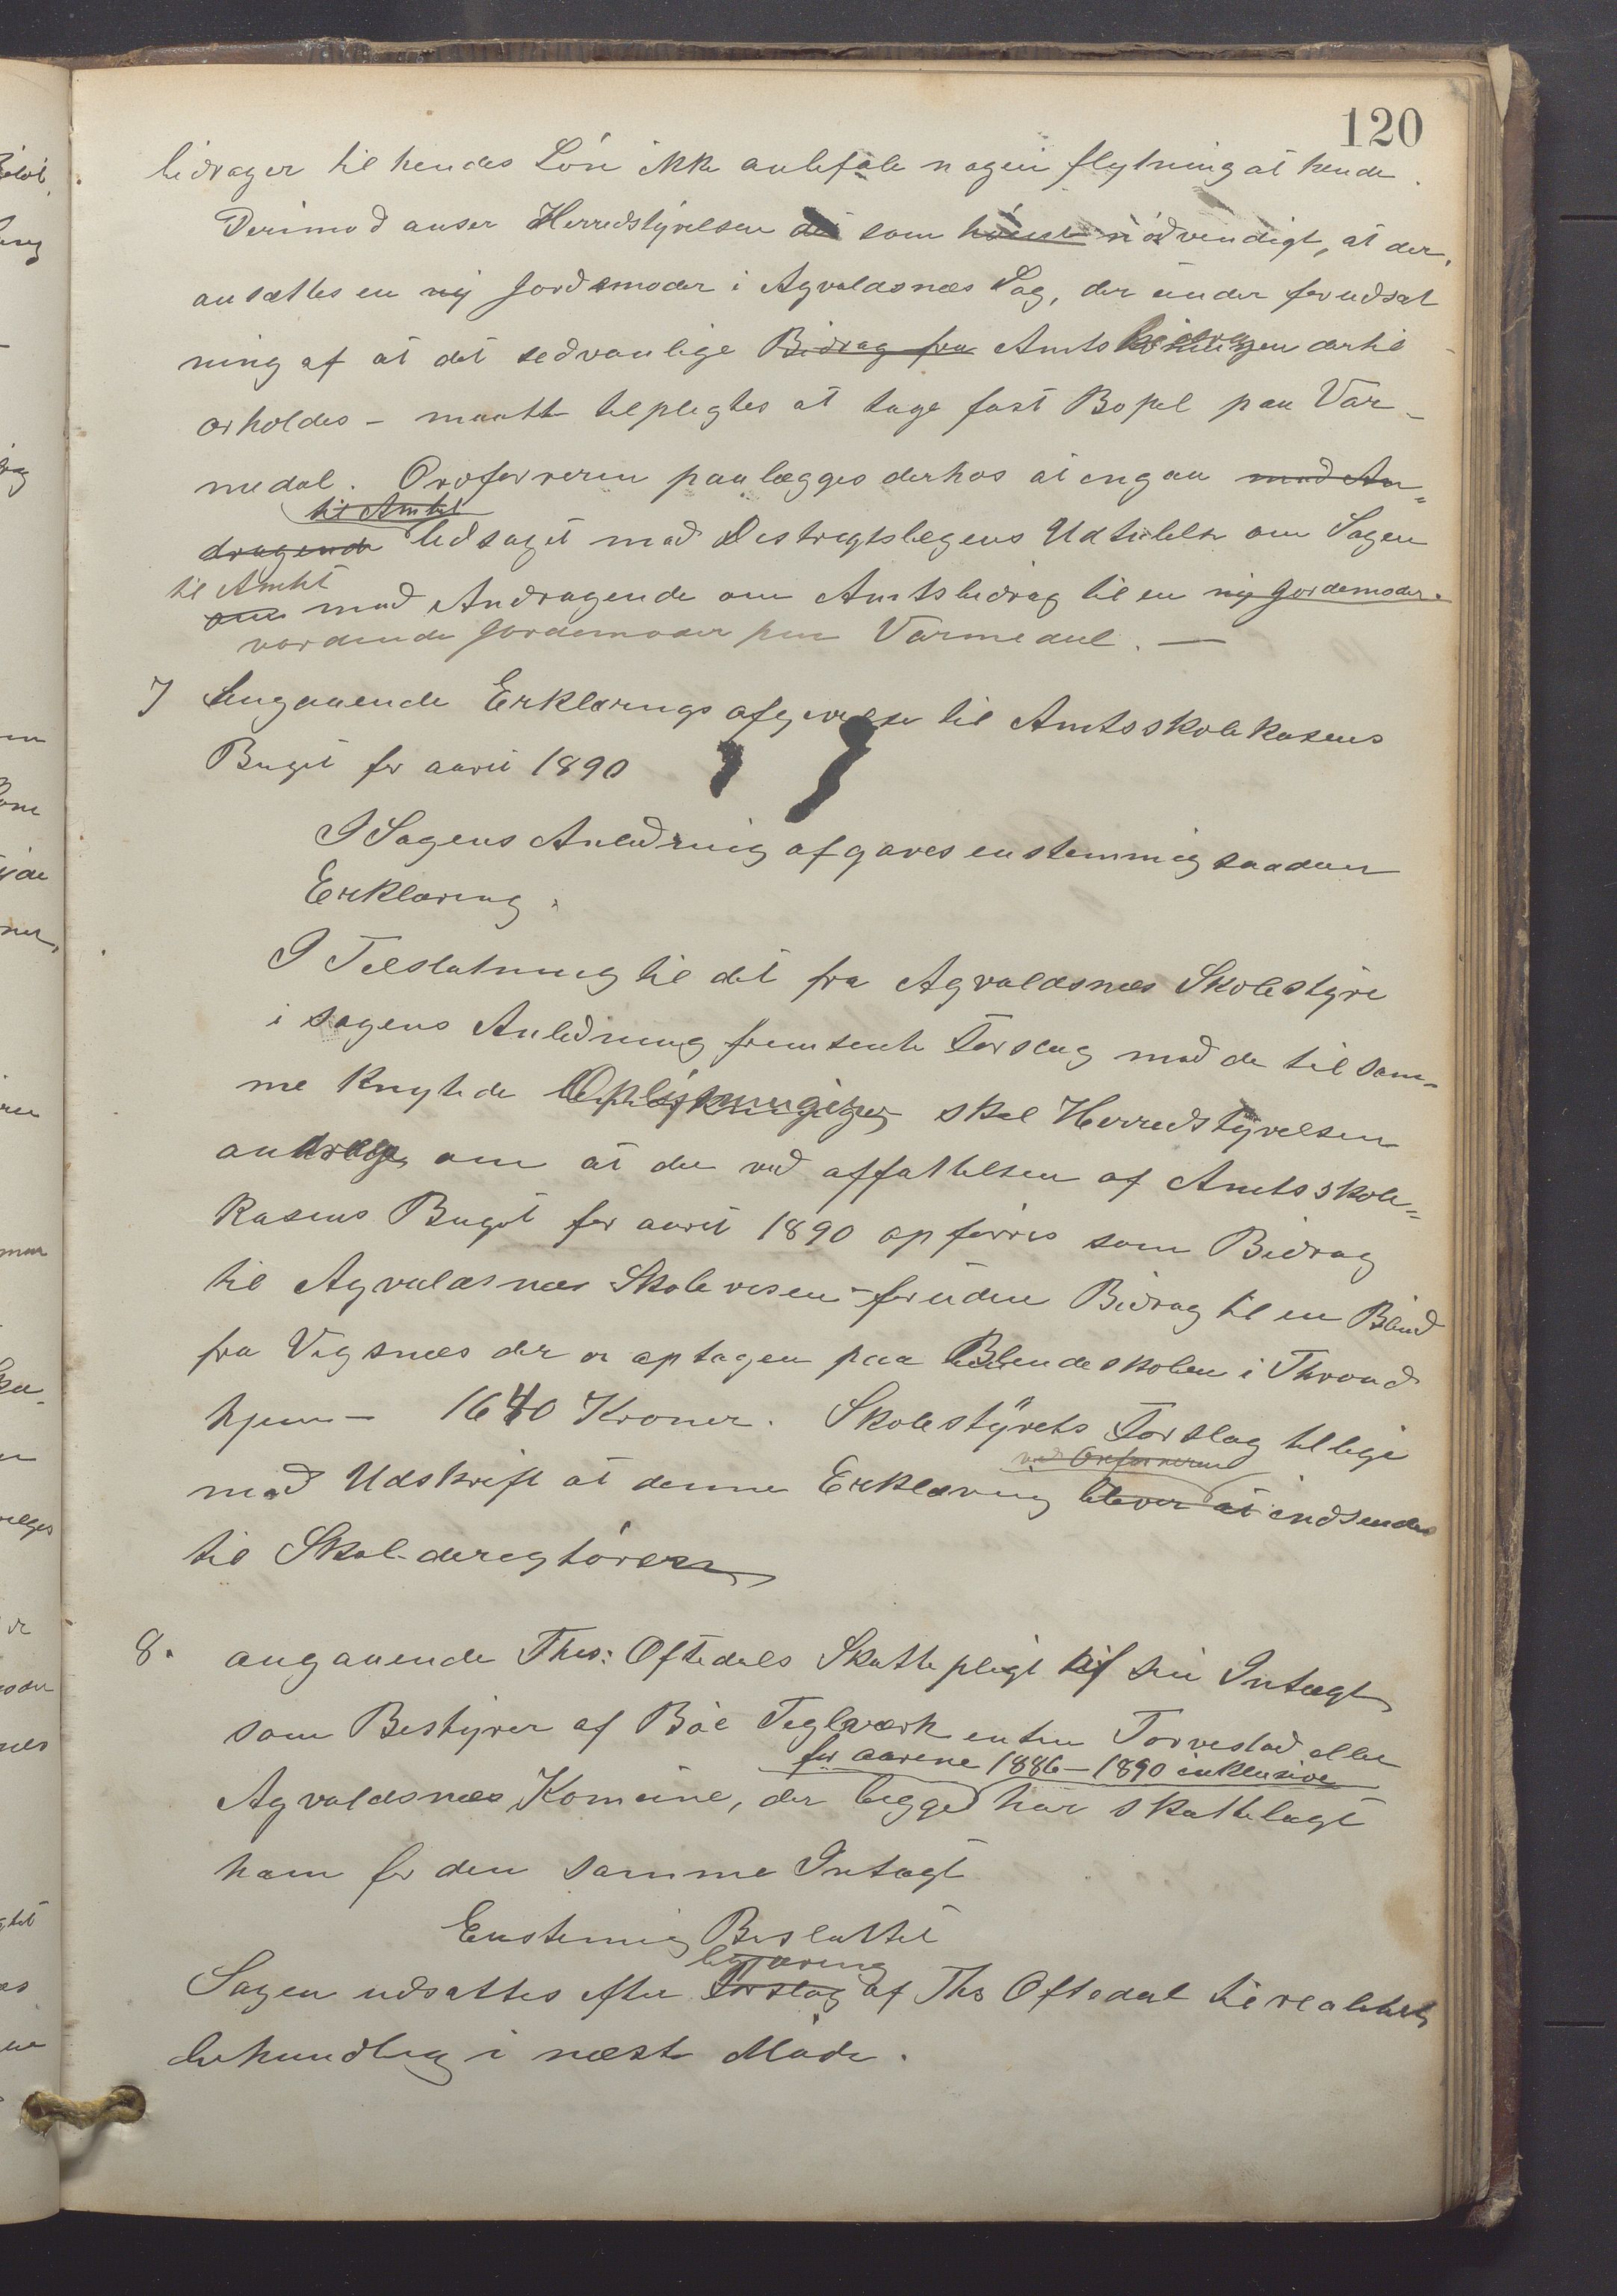 120
bidrager til hendes Lön ikke anbefale nogen flytning at hende.
Derimod anser Herredstyrelsen det som höiest nödvendigt, at der
ansættes en ny Jordemoder i Agvaldsnæs Sog, der under forudsæt
ning af at det sedvanlige Bidrag fra Amts bidrag dertil
erholdes – maatte tilpligtes at tage fast Bopel paa Var-
medal. Oroforreren paalægges derhos at engaa med An-
til Amtet
dragende ledsaget med Destrigtslegens Udtalelse om Sagen
til Amtet
om med Andragende om Amtsbidrag til en ny Gordemoder.
vordende Gordemoder paa Varmedal. —
7 Angaaende Erklerings afgivelse til Amtsskolekasens
Buget for aaret 1890
I Sagens Anledning afgaves enstemmig saadan
Erklæring.
I Tilslutning til det fra Agvaldsnæs Skolestyre
i sagens Anledning fremsente Forslag med de til sam-
me knytede Oplysninger skal Herredstyrelsen
andrage om at der ved affattelsen af Amtsskole-
kasens Buget for aaret 1890 opförres som Bidrag
til Agvaldsnæs Skolevesen – foruden Bidrag til en Blind
fra Vigsnæs der er optagen paa Blendeskolen i Thrond
hjem – 1640 Kroner. Skolestyrets Forslag tillige
ved Orforreren
med Udskrift at denne Erklæring blever at indsendes
til Skolederegtören
8. angaaende Ths: Oftedals Skattepligt af sin Intægt
som Bestyrer af Böe Teglverk enten Torvestad eller
for aarene 1886 – 1890 inklusive
Agvaldsnæs Komune, der begge har skattelagt
ham for den samme Intægt
Enstemig Besluttet
begjæring
Sagen udsattes efter Forslag af Ths Oftedal til realitets
behandling i næste Möde.